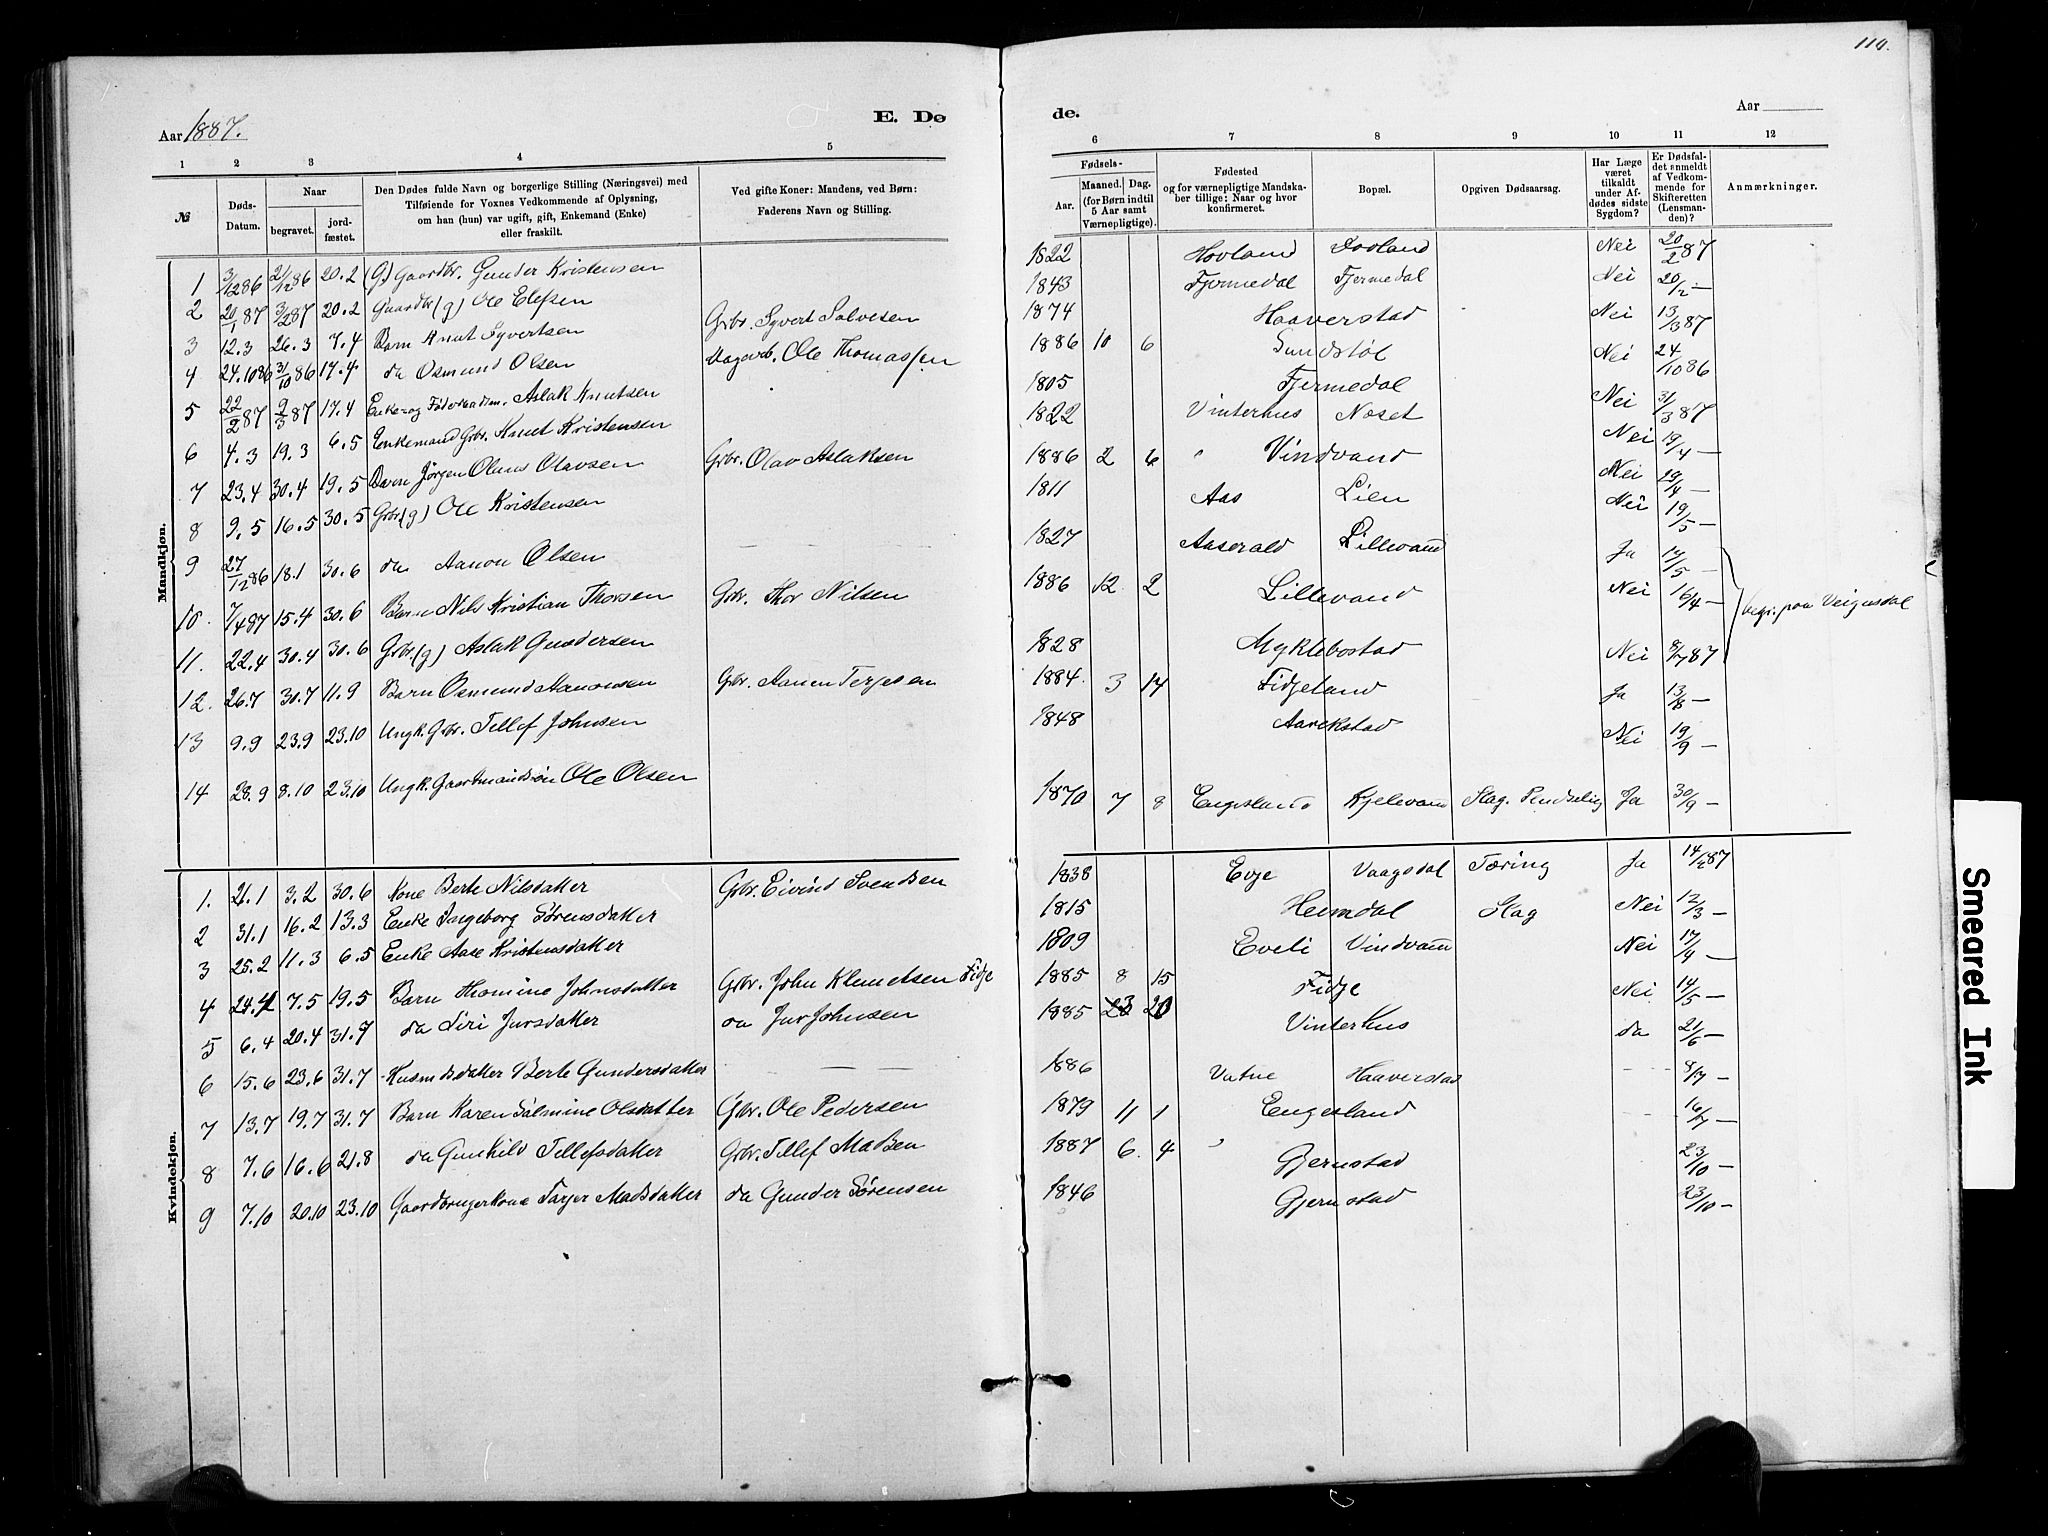 110.
Aar 1887.
E. Dø
de.
Aar
1 2 3 4 5
6 7 8 9 10 11 12
№
Døds-Datum.
Naar
begravet.
jord-fæstet.
Den Dødes fulde Navn og borgerlige Stilling (Næringsvei) med
Tilføiende for Voxnes Vedkommende af Oplysning,
om han (hun) var ugift, gift, Enkemand (Enke)
eller fraskilt.
Ved gifte Koner: Mandens, ved Børn:
Faderens Navn og Stilling.
Fødsels-
Aar.
Maaned. Dag.
(for Børn indtil
5 Aar samt
Værnepligtige).
Fødested
og for værnepligtige Mandska-
ber tillige: Naar og hvor
konfirmeret.
Bopæl.
Opgiven Dødsaarsag.
Har Læge
været
tilkaldt
under Af-
dødes sidste
Sygdom?
Er Dødsfal-
det anmeldt
af Vedkom-
mende for
Skifteretten
(Lensman-
den)?
Anmærkninger.
Mandkjøn.
1 3/12 86 21/12 86 20.2 (G) Gaardbr. Gunder Kristensen 1822 Hovland Dovland Nei 20/2 87
2 20/1 87 3/2 87 20.2 Gaardbr (g) Ole Elefsen 1843 Fjermedal Fjermedal Nei 20/2 —
3 12.3 26.3 7.4 Barn Knut Syvertsen Grbr. Syvert Salvesen 1874 Haaverstad Nei 13/3 87
4 24.10 86 31/10 86 17.4 da Osmund Olsen Ole Thomassen 1886 10 6 Sundstøl Nei 24/10 86
5 22/2 87 9/3 87 17.4 Aslak Knutsen 1805 Fjermedal Nei 31/3 87
6 4.3 19.3 6.5 Enkemand Grbr. Knut Kristensen 1822 Vinterhus Nøset Nei 19/4 —
7 23.4 30.4 19.5 Barn Jørgen Olaus Olavsen Grbr. Olav Aslaksen 1886 2 6 " Vindvand Nei 29/4 —
8 9.5 16.5 30.5 Grbr. (g) Ole Kristensen 1811 Aas Lien Nei 19/5 —
9 27/12 86 18.1 30.6 da Aanon Olsen — — — 1827 Aaserald Lillevand Ja 17/5 —
10. 7/4 87 15.4 30.6 Barn Nils Kristian Thorsen Grbr. Thor Nilsen 1886 12 2 Lillevand Nei 16/4 — begr. paa Veigusdal
11. 22.4 30.4 30.6 Grbr. (g) Aslak Gundersen 1828 Myklebostad Nei 8/7 87
12. 26.7 30.7 11.9 Barn Osmund Aanonsen Grbr. Aanon Terjesen 1884. 3 14 Fidjeland Ja 13/8 —
13 9.9 23.9 23.10 Ungk. Grbr. Tellef Johnsen 1848 Aarikstad Nei 19/9 —
14 28.9 8.10 23.10 Ungk. Gaardmandsøn Ole Olsen 1870 7 8 Engesland Kjelevand Slag. Ja 30/9 —
Kvindekjøn.
1. 21.1 3.2 30.6 Kone Berte Nilsdatter Grbr. Eivind Svendsen 1838 Evje Vaagsdal Tæring Ja 14/2 87
2 31.1 16.2 13.3 Enke Ingeborg Sørensdatter 1815 Heimdal Slag Nei 12/3 —
3 25.2 11.3 6.5 Enke Aase Kristensdatter 1809 Eveli Vindvand Nei 17/4 —
4 24.4 7.5 19.5 Barn Thomine Johnsdatter Grbr. John Klemetsen Fidje 1885 8 15 Fidje Nei 14/5 —
5 6.4 20.4 31.7 da Siri Jursdatter da Jur Johnsen 1885 Vinterhus da 21/6 —
6 15.6 23.6 31.7 Husmdsdatter Berte Gundersdatter — — — 1886 Vatne Haaverstad — — 8/7 —
7 13.7 19.7 31.7 Barn Karen Salmine Olsdatter Grbr. Ole Pedersen 1879 11 1 Engesland — — 16/7 —
8 7.6 16.6 21.8 da Gunhild Tellefsdatter Grbr. Tellef Madsen 1887 6. 4 " Gjernstad 23/10 —
9 7.10 20.10 23.10 Gaardbrugerkone Tarjer Madsdatter da Gunder Sørensen 1846 Gjernstad 23/10 —
Smeared Ink